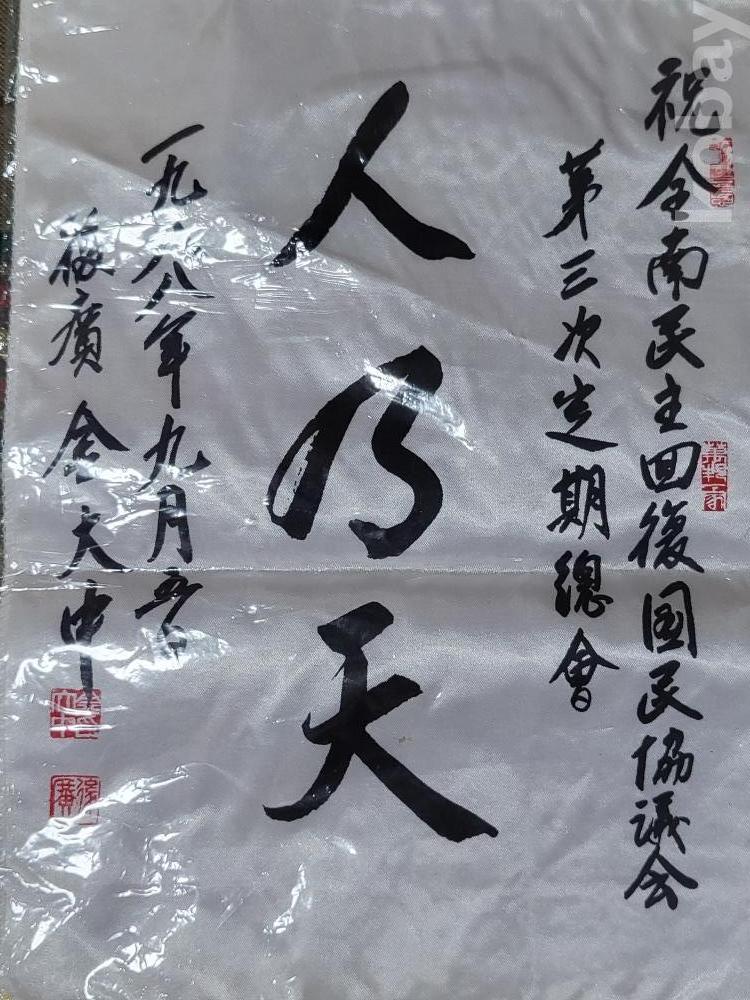 祝全南民主回復國民協議会
第三次定期總會
人乃天
一九八八年九月五日
後廣 金大中
kobay